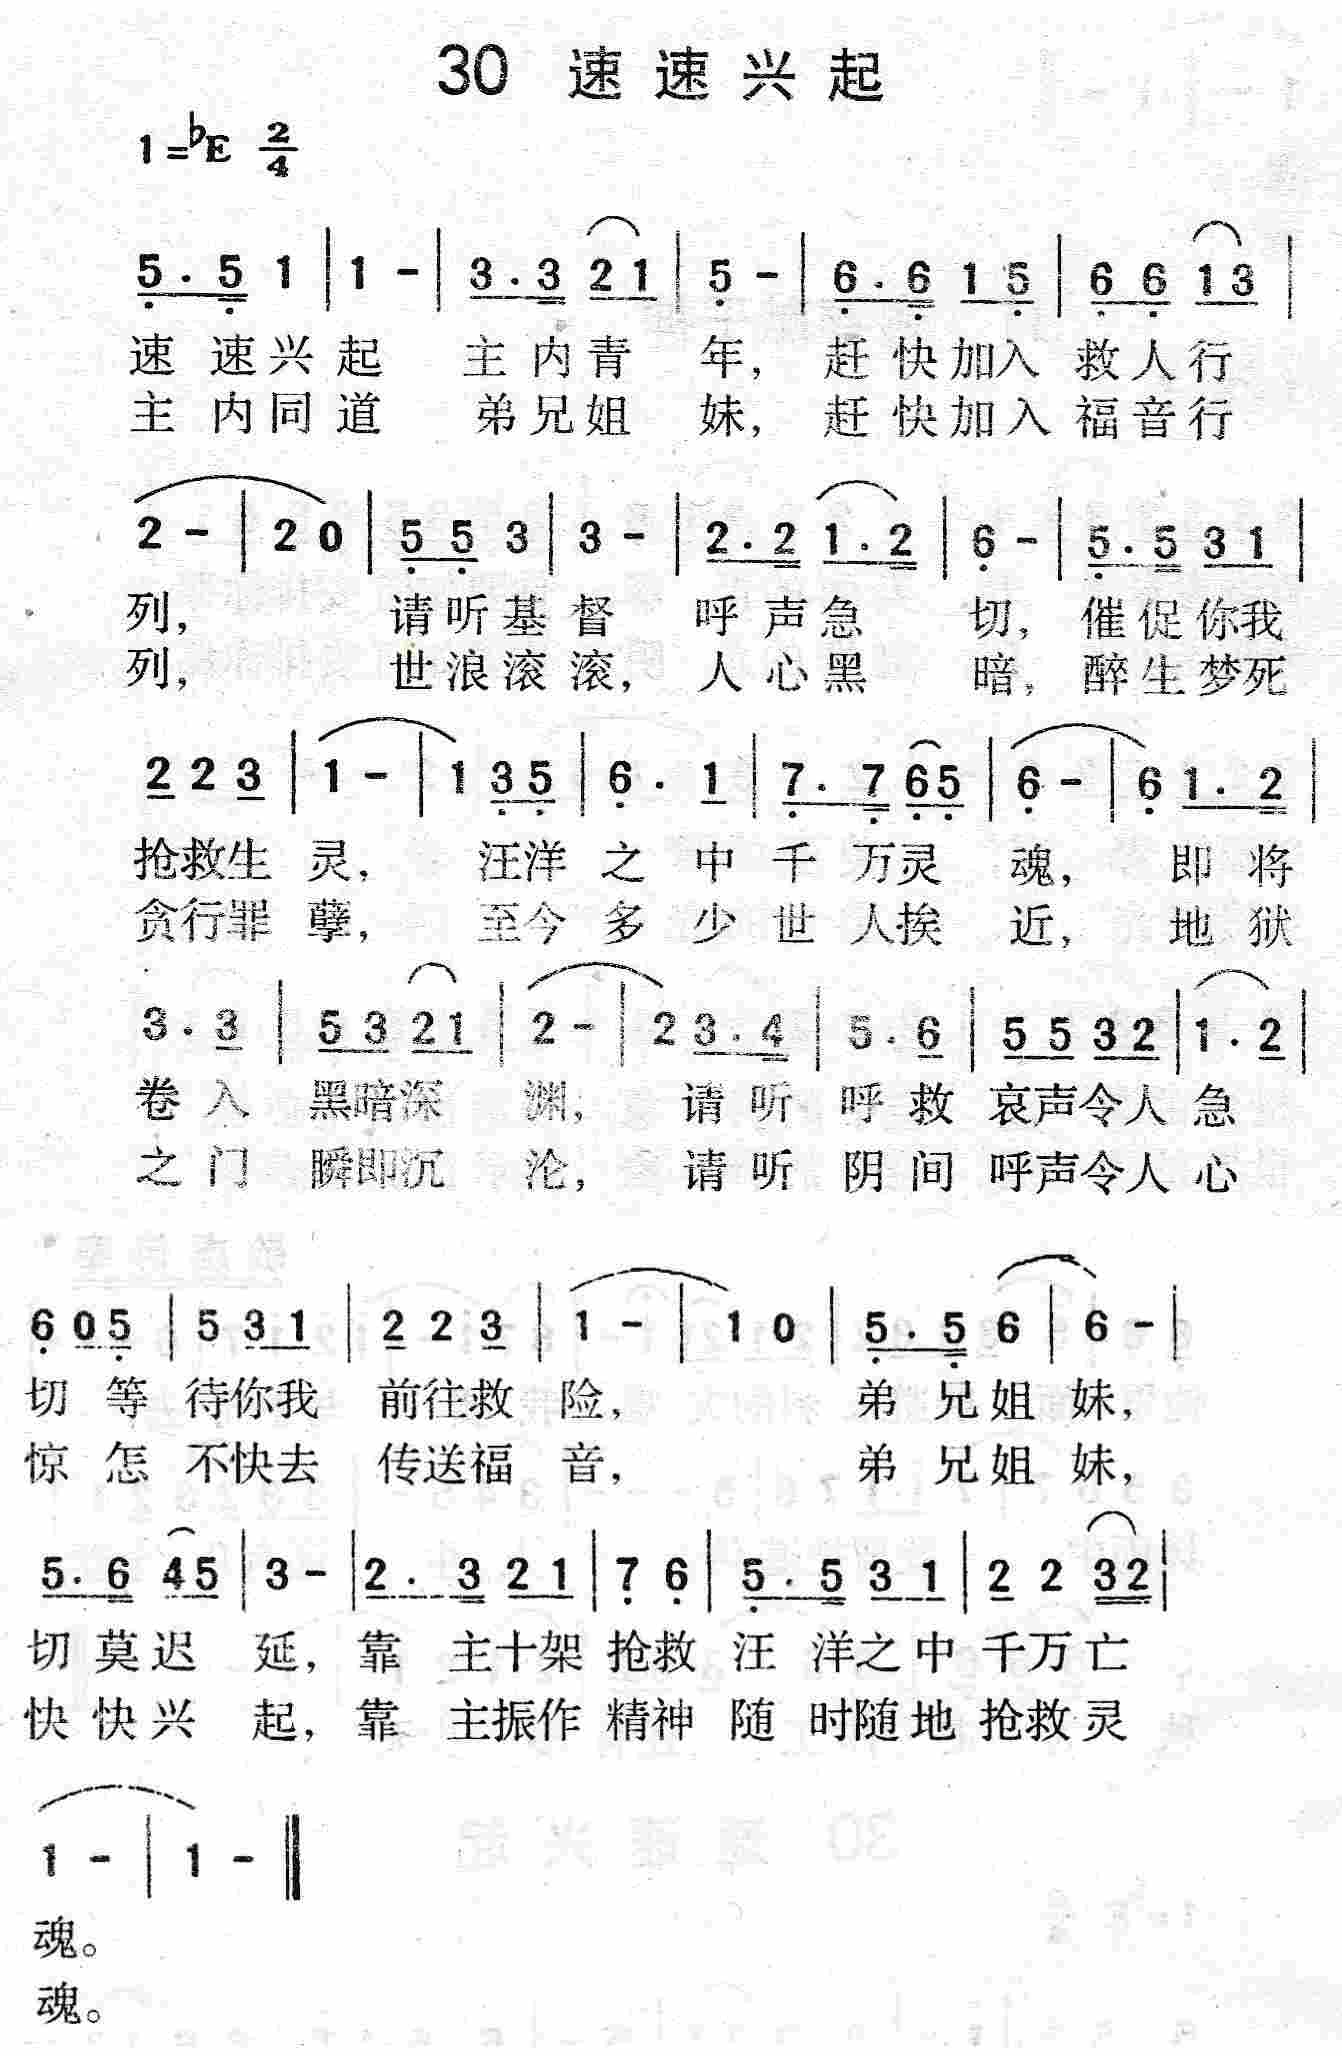 30 速速兴起
1=♭E 2/4
5. 5 1 | 1 - | 3. 3 2 1 | 5 - | 6. 6 1 5 | 6 6 1 3 |
速速兴起 主内青年,赶快加入救人行
主内同道 弟兄姐妹,赶快加入福音行
2 - | 2 0 | 5 5 3 | 3 - | 2. 2 1. 2 | 6 - | 5. 5 3 1 |
列, 请听基督 呼声急切,催促你我
列, 世浪滚滚,人心黑暗,醉生梦死
2 2 3 | 1 - | 1 3 5 | 6. 1 | 7. 7 6 5 | 6 - | 6 1. 2 |
抢救生灵, 汪洋之中千万灵魂, 即将
贪行罪孽, 至今多少世人挨近, 地狱
3. 3 | 5 3 2 1 | 2 - | 2 3. 4 | 5. 6 | 5 5 3 2 | 1. 2 |
卷入黑暗深渊, 请听呼救哀声令人急
之门瞬即沉沦, 请听阴间呼声令人心
6 0 5 | 5 3 1 | 2 2 3 | 1 - | 1 0 | 5. 5 6 | 6 - |
切等待你我前往救险, 弟兄姐妹,
惊怎不快去传送福音, 弟兄姐妹,
5. 6 4 5 | 3 - | 2. 3 2 1 | 7 6 | 5. 5 3 1 | 2 2 3 2 |
切莫迟延,靠主十架抢救汪洋之中千万亡
快快兴起,靠主振作精神随时随地抢救灵
1 - | 1 - ‖
魂。
魂。